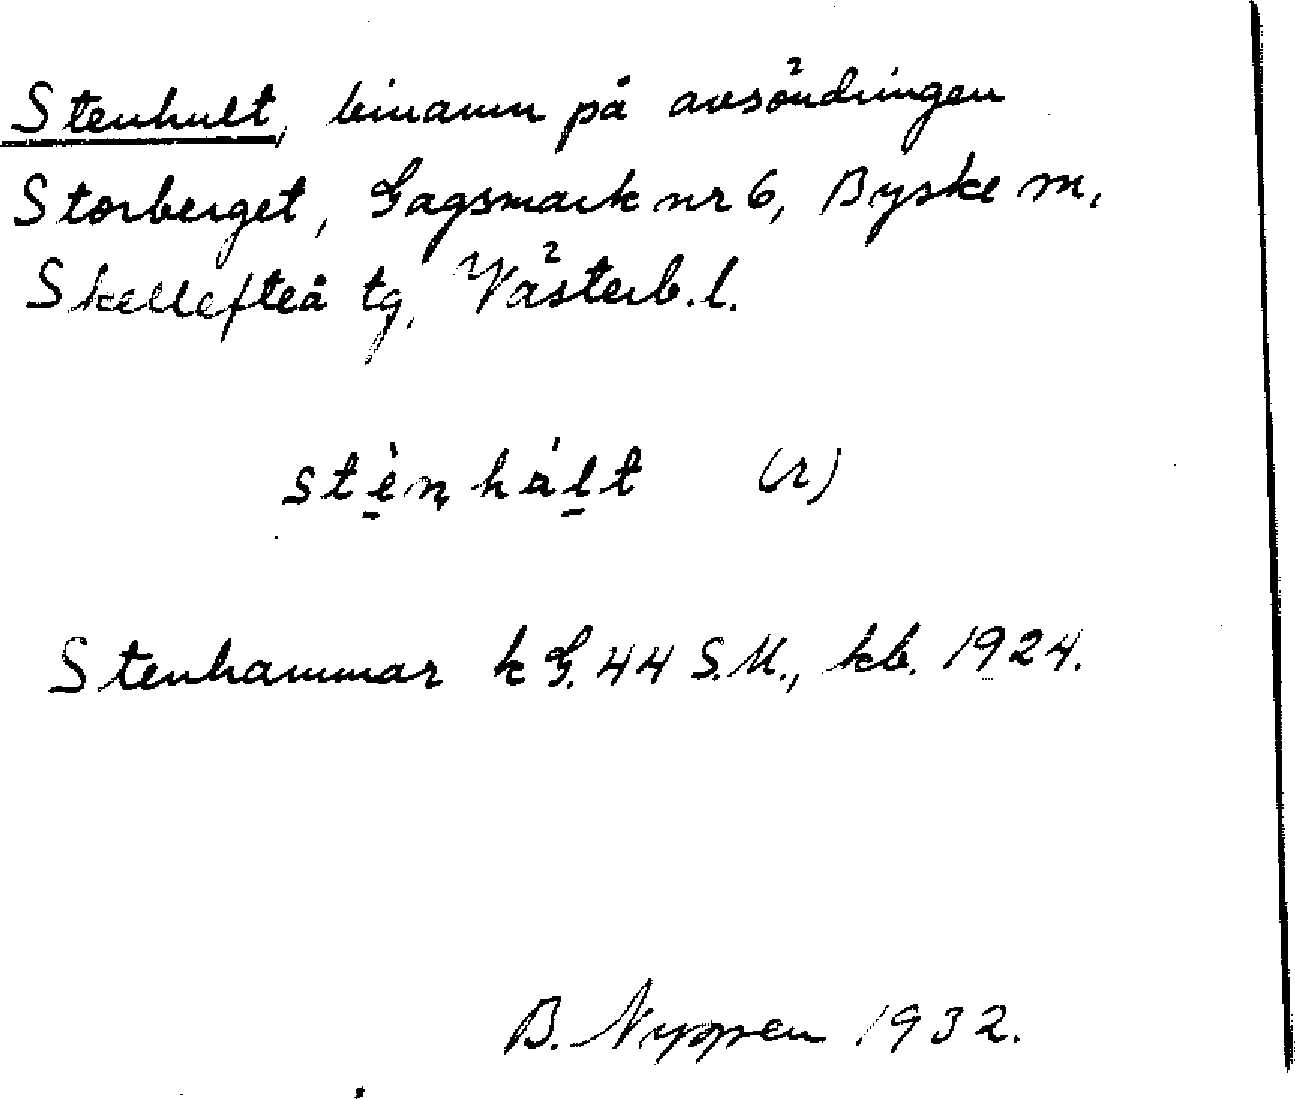 Stenhult, binamn på avsöndringen
Storberget, Gagsmark nr 6, Byske sn,
Skellefteå tg, Västerb. l.
stènhált (r)
Stenhammar k G. 44 S.M., kb. 1924.
B. Nyppen 1932.